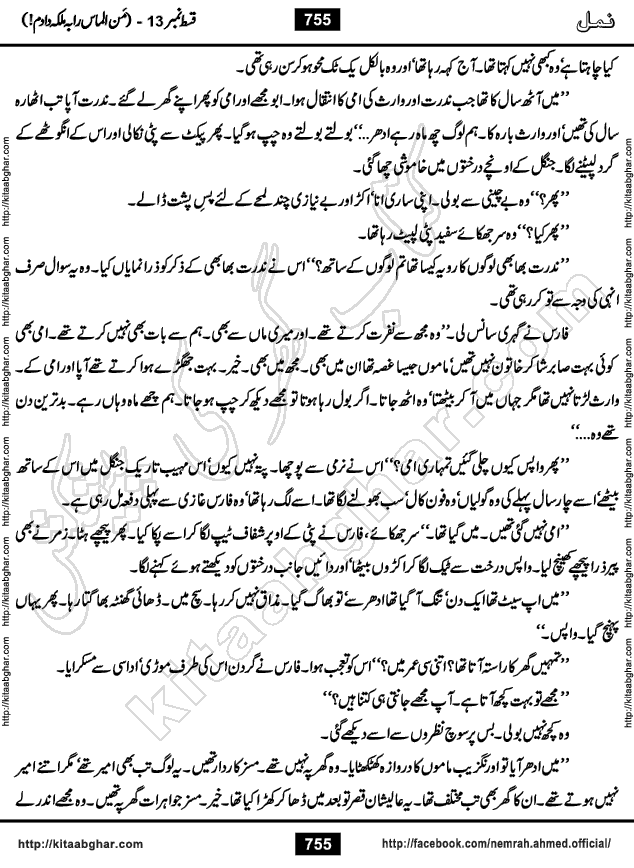 نمل
755
قسط نمبر 13 - (مَن الماس رابہ ملکہ دادم!)
کیا چاہتا ہے' وہ کبھی نہیں کہتا تھا۔ آج کہہ رہا تھا' اور وہ بالکل یک ٹک محو ہو کر سن رہی تھی۔
’’میں آٹھ سال کا تھا جب ندرت اور وارث کی امی کا انتقال ہوا۔ ابو مجھے اور امی کو پھر اپنے گھر لے گئے۔ ندرت آپا تب اٹھارہ
سال کی تھیں' اور وارث بارہ کا۔ ہم لوگ چھ ماہ رہے ادھر...‘‘ بولتے بولتے وہ چپ ہو گیا۔ پھر پیکٹ سے پٹی نکالی اور اس کے انگوٹھے کے
گرد لپیٹنے لگا۔ جنگل کے اونچے درختوں میں خاموشی چھا گئی۔
’’پھر؟‘‘ وہ بے چینی سے بولی۔ اپنی ساری انا' اکڑ اور بے نیازی چند لمحے کے لئے پسِ پشت ڈالے۔
’’پھر کیا؟‘‘ وہ سر جھکائے سفید پٹی لپیٹ رہا تھا۔
’’ندرت بھابھی لوگوں کا رویہ کیسا تھا تم لوگوں کے ساتھ؟‘‘ اس نے ندرت بھابھی کے ذکر کو ذرا نمایاں کیا۔ وہ یہ سوال صرف
انہی کی وجہ سے تو کر رہی تھی۔
فارس نے گہری سانس لی۔ ’’وہ مجھ سے نفرت کرتے تھے۔ اور میری ماں سے بھی۔ ہم سے بات بھی نہیں کرتے تھے۔ امی بھی
کوئی بہت صابر شاکر خاتون نہیں تھیں' ماموں جیسا غصہ تھا ان میں بھی۔ مجھ میں بھی۔ خیر۔ بہت جھگڑے ہوا کرتے تھے آپا اور امی کے۔
وارث لڑتا نہیں تھا مگر جہاں میں آ کر بیٹھتا' وہ اٹھ جاتا۔ اگر بول رہا ہوتا تو مجھے دیکھ کر چپ ہو جاتا۔ ہم چھے ماہ وہاں رہے۔ بدترین دن
تھے وہ....‘‘
’’پھر واپس کیوں چلی گئیں تمہاری امی؟‘‘ اس نے نرمی سے پوچھا۔ پتہ نہیں کیوں' اس مہیب تاریک جنگل میں اس کے ساتھ
بیٹھے' اسے چار سال پہلے کی وہ گولیاں' وہ فون کال' سب بھولنے لگا تھا۔ اسے لگ رہا تھا' وہ فارس غازی سے پہلی دفعہ مل رہی ہے۔
’’امی نہیں گئی تھیں۔ میں گیا تھا۔‘‘ سر جھکائے، فارس نے پٹی کے اوپر شفاف ٹیپ لگا کر اسے پکا کیا۔ پھر پیچھے ہٹا۔ زمر نے بھی
پیر ذرا پیچھے کھینچ لیا۔ واپس درخت سے ٹیک لگا کر اکڑوں بیٹھا' اور دائیں جانب درختوں کو دیکھتے ہوئے کہنے لگا۔
’’میں اپ سیٹ تھا' ایک دن' تنگ آ گیا تھا ادھر سے' تو بھاگ گیا۔ مذاق نہیں کر رہا۔ سچ میں۔ ڈھائی گھنٹہ بھاگتا رہا۔ پھر یہاں
پہنچ گیا۔ واپس۔‘‘
’’تمہیں گھر کا راستہ آتا تھا؟ اتنی سی عمر میں؟‘‘ اس کو تعجب ہوا۔ فارس نے گردن اس کی طرف موڑی' اداسی سے مسکرایا۔
’’مجھے تو بہت کچھ آتا ہے۔ آپ مجھے جانتی ہی کتنا ہیں؟‘‘
وہ کچھ نہیں بولی۔ بس پر سوچ نظروں سے اسے دیکھے گئی۔
’’میں ادھر آیا تو اورنگزیب ماموں کا دروازہ کھٹکھٹایا۔ وہ گھر پہ نہیں تھے۔ مسز کاردار تھیں۔ یہ لوگ تب بھی امیر تھے' مگر اتنے امیر
نہیں ہوتے تھے۔ ان کا گھر بھی تب مختلف تھا۔ یہ عالیشان قصر تو بعد میں ڈھا کر کھڑا کیا تھا۔ خیر۔ مسز جواہرات گھر پہ تھیں۔ وہ مجھے اندر لے
http://kitaabghar.com
755
http://facebook.com/nemrah.ahmed.official/
http://kitaabghar.com http://kitaabghar.com http://kitaabghar.com http://kitaabghar.com http://kitaabghar.com http://kitaabghar.com
http://kitaabghar.com http://kitaabghar.com http://kitaabghar.com http://kitaabghar.com http://kitaabghar.com http://kitaabghar.com
کتاب گھر کی پیشکش
kitaabghar.com